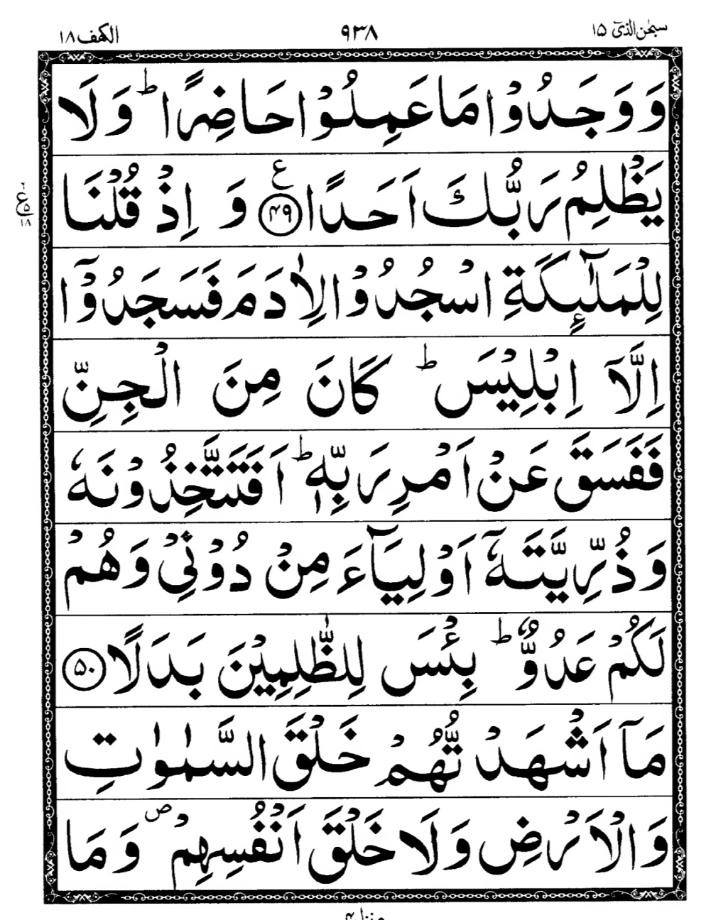 سبحٰن الذیٓ ۱۵ ۹۳۸ الکهف ۱۸
وَ وَجَدُوْا مَا عَمِلُوْا حَاضِرًا ؕ وَ لَا
یَظْلِمُ رَبُّكَ اَحَدًا ﴿۴۹﴾ ع وَ اِذْ قُلْنَا
لِلْمَلٰٓىِٕكَةِ اسْجُدُوْا لِاٰدَمَ فَسَجَدُوْۤا
اِلَّاۤ اِبْلِیْسَ ؕ كَانَ مِنَ الْجِنِّ
فَفَسَقَ عَنْ اَمْرِ رَبِّهٖ ؕ اَفَتَتَّخِذُوْنَهٗ
وَ ذُرِّیَّتَهٗۤ اَوْلِیَآءَ مِنْ دُوْنِیْ وَ هُمْ
لَكُمْ عَدُوٌّ ؕ بِئْسَ لِلظّٰلِمِیْنَ بَدَلًا ﴿۵۰﴾
مَاۤ اَشْهَدْتُّهُمْ خَلْقَ السَّمٰوٰتِ
وَ الْاَرْضِ وَ لَا خَلْقَ اَنْفُسِهِمْ ۪ وَ مَا